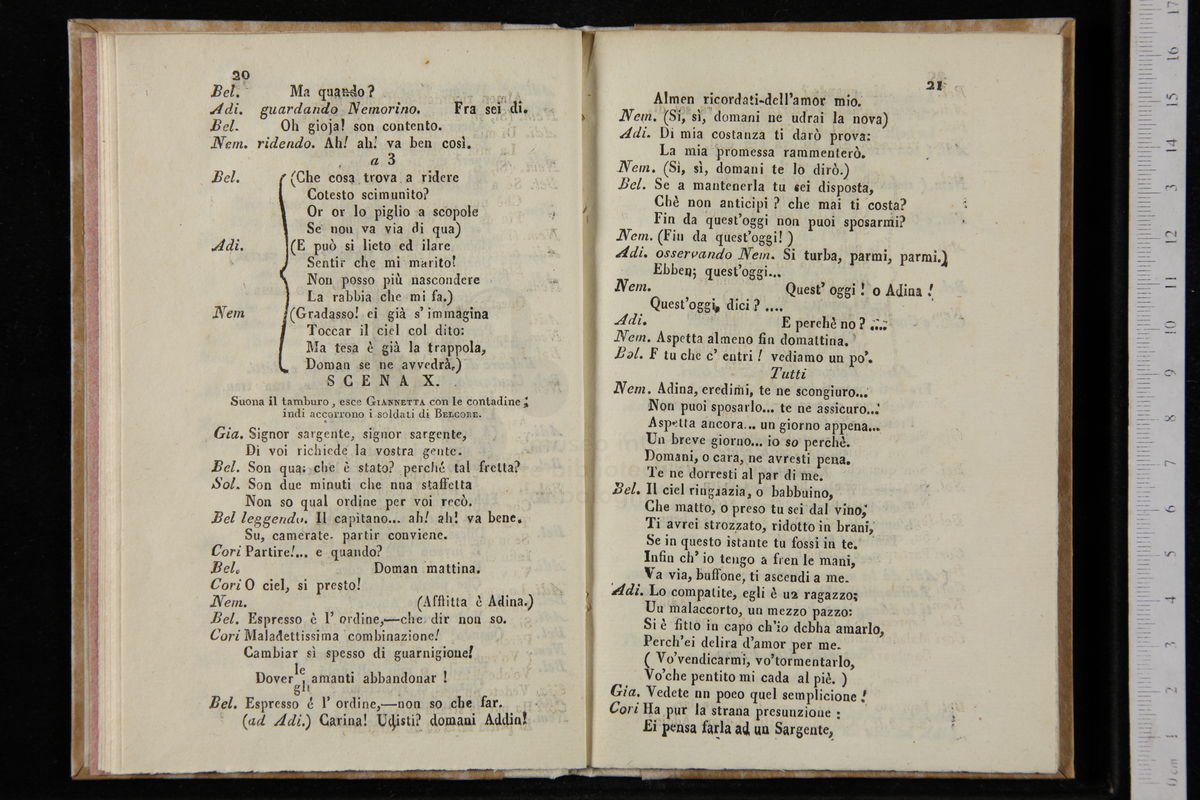 20
Bel. Ma quando?
Adi. guardando Nemorino. Fra sei di.
Bel. Oh gioja! son contento.
Nem. ridendo. Ah! ah! va ben così.
a 3
Bel. (Che cosa trova a ridere
Cotesto scimunito?
Or or lo piglio a scopole
Se non va via di qua)
Adi. (E può si lieto ed ilare
Sentir che mi marito!
Non posso più nascondere
La rabbia che mi fa.)
Nem (Gradasso! ei già s'immagina
Toccar il ciel col dito:
Ma tesa è già la trappola,
Doman se ne avvedrà.)
SCENA X.
Suona il tamburo, esce GIANNETTA con le contadine;
indi accorrono i soldati di BELCORE.
Gia. Signor sargente, signor sargente,
Di voi richiede la vostra gente.
Bel. Son qua: che è stato? perché tal fretta?
Sol. Son due minuti che nna staffetta
Non so qual ordine per voi recò.
Bel leggendo. Il capitano... ah! ah! va bene.
Su, camerate. partir conviene.
Cori Partire!... e quando?
Bel. Doman mattina.
Cori O ciel, si presto!
Nem. (Afflitta è Adina.)
Bel. Espresso è l' ordine,—che dir non so.
Cori Maladettissima combinazione!
Cambiar sì spesso di guarnigione!
Dover le amanti abbandonar !
gli
Bel. Espresso é l' ordine,—non so che far.
(ad Adi.) Carina! Udisti? domani Addin!
21
Almen ricordati-dell'amor mio.
Nem. (Si, sì, domani ne udrai la nova)
Adi. Di mia costanza ti darò prova:
La mia promessa rammenterò.
Nem. (Si, sì, domani te lo dirò.)
Bel. Se a mantenerla tu sei disposta,
Chè non anticipi ? che mai ti costa?
Fin da quest'oggi non puoi sposarmi?
Nem. (Fin da quest'oggi! )
Adi. osservando Nem. Si turba, parmi, parmi.)
Ebben; quest'oggi...
Nem. Quest' oggi ! o Adina !
Quest'oggi, dici ? ....
Adi. E perchè no ? ....
Nem. Aspetta almeno fin domattina.
Bel. F tu che c' entri ! vediamo un po'.
Tutti
Nem. Adina, eredimi, te ne scongiuro...
Non puoi sposarlo... te ne assicuro...
Aspetta ancora... un giorno appena...
Un breve giorno... io so perchè.
Domani, o cara, ne avresti pena.
Te ne dorresti al par di me.
Bel. Il ciel ringiazia, o babbuino,
Che matto, o preso tu sei dal vino,
Ti avrei strozzato, ridotto in brani,
Se in questo istante tu fossi in te.
Infin ch' io tengo a fren le mani,
Va via, buffone, ti ascendi a me.
Adi. Lo compatite, egli è ua ragazzo;
Uu malaccorto, un mezzo pazzo:
Si è fitto in capo ch'io debha amarlo,
Perch'ei delira d'amor per me.
( Vo'vendicarmi, vo'tormentarlo,
Vo'che pentito mi cada al piè. )
Gia. Vedete un poeo quel semplicione !
Cori Ha pur la strana presunzione :
Ei pensa farla ad un Sargente,